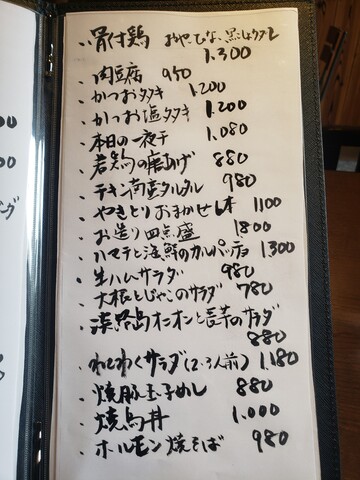 ・骨付鶏 おや、ひな、黒しょうダレ
1.300
・肉豆腐 950
・かつおタタキ 1.200
・かつお塩タタキ 1.200
・本日の一夜干 1.080
・若鶏の唐あげ 880
・チキン南蛮タルタル 980
・やきとりおまかせ6本 1100
・お造り四点盛 1800
・ハマチと海鮮のカルパッチョ 1.300
・生ハムサラダ 980
・大根とじゃこのサラダ 780
・淡路島オニオンと長芋のサラダ
880
・わくわくサラダ(2-3人前) 1.180
・焼豚玉子めし 880
・焼鳥丼 1.000
・ホルモン焼そば 980